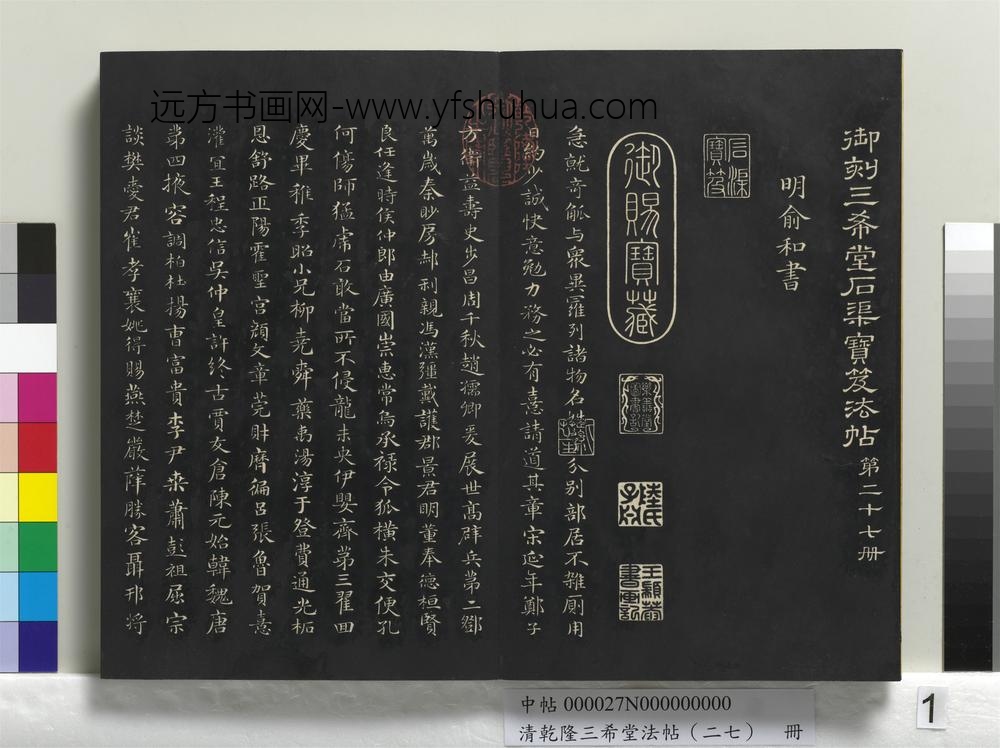 远方书画网-www.yfshuhua.com
御刻三希堂石渠寶笈法帖 第二十七册
明俞和書
石渠寶笈
御賜寶藏
急就奇觚与衆異羅列諸物名姓 分別部居不雜厠用
日約少誠快意勉力務之必有憙請道其章宋延年鄭子
方衛益壽史步昌周千秋趙孺卿爰展世高辟兵第二鄧
萬歲秦眇房郝利親馮漢彊戴護郡景君明董奉德桓賢
良任逢時侯仲郎由廣國崇惠常烏承禄令狐橫朱交便孔
何傷師猛虎石敢當所不侵龍未央伊嬰齊第三翟回
慶畢稚季昭小兄柳堯舜藥禹湯淳于登費通光柘
恩舒路正陽霍聖宮顏文章莞財曆偏呂張魯賀憙
灌宜王程忠信吳仲皇許終古賈友倉陳元始韓魏唐
第四掖容調柏杜揚曹富貴李尹桒蕭彭祖屈宗
談樊愛君崔孝襄姚得賜燕楚嚴薛勝客聶邗將
中帖 000027N000000000
清乾隆三希堂法帖（二七） 冊
1